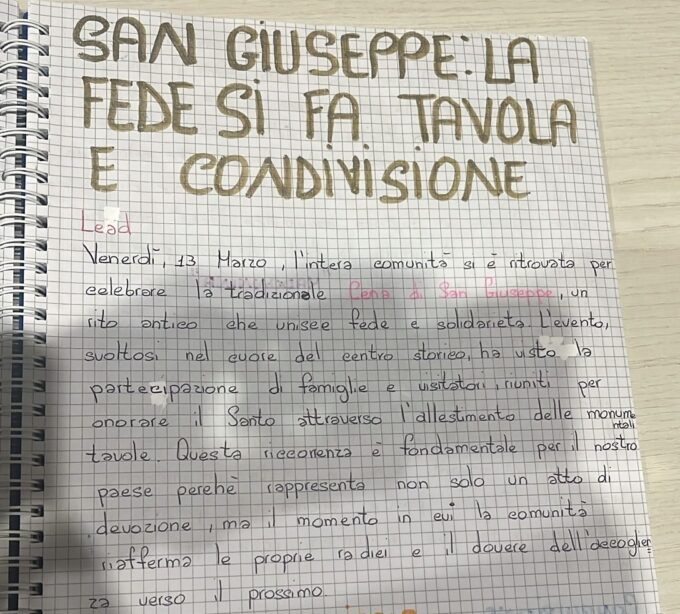 SAN GIUSEPPE: LA
FEDE SI FA TAVOLA
E CONDIVISIONE
Lead
Venerdì, 13 Marzo, l'intera comunità si è ritrovata per
celebrare la tradizionale Cena di San Giuseppe, un
rito antico che unisce fede e solidarietà. L'evento,
svoltosi nel cuore del centro storico, ha visto la
partecipazione di famiglie e visitatori, riuniti per
onorare il Santo attraverso l'allestimento delle monumentali
tavole. Questa ricorrenza è fondamentale per il nostro
paese perchè rappresenta non solo un atto di
devozione, ma il momento in cui la comunità
riafferma le proprie radici e il dovere dell'accoglien
za verso il prossimo.